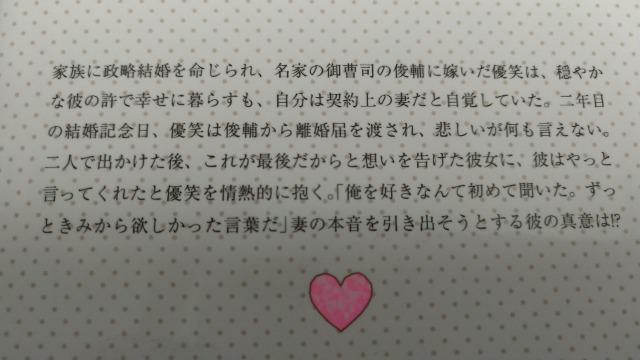 家族に政略結婚を命じられ、名家の御曹司の俊輔に嫁いだ優笑は、穏やか
な彼の許で幸せに暮らすも、自分は契約上の妻だと自覚していた。二年目
の結婚記念日、優笑は俊輔から離婚届を渡され、悲しいが何も言えない。
二人で出かけた後、これが最後だからと想いを告げた彼女に、彼はやっと
言ってくれたと優笑を情熱的に抱く。「俺を好きなんて初めて聞いた。ずっ
ときみから欲しかった言葉だ」妻の本音を引き出そうとする彼の真意は!?